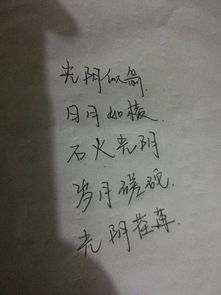 光阴似箭
日月如梭.
石火光阴
岁月磋砣.
光阴荏苒